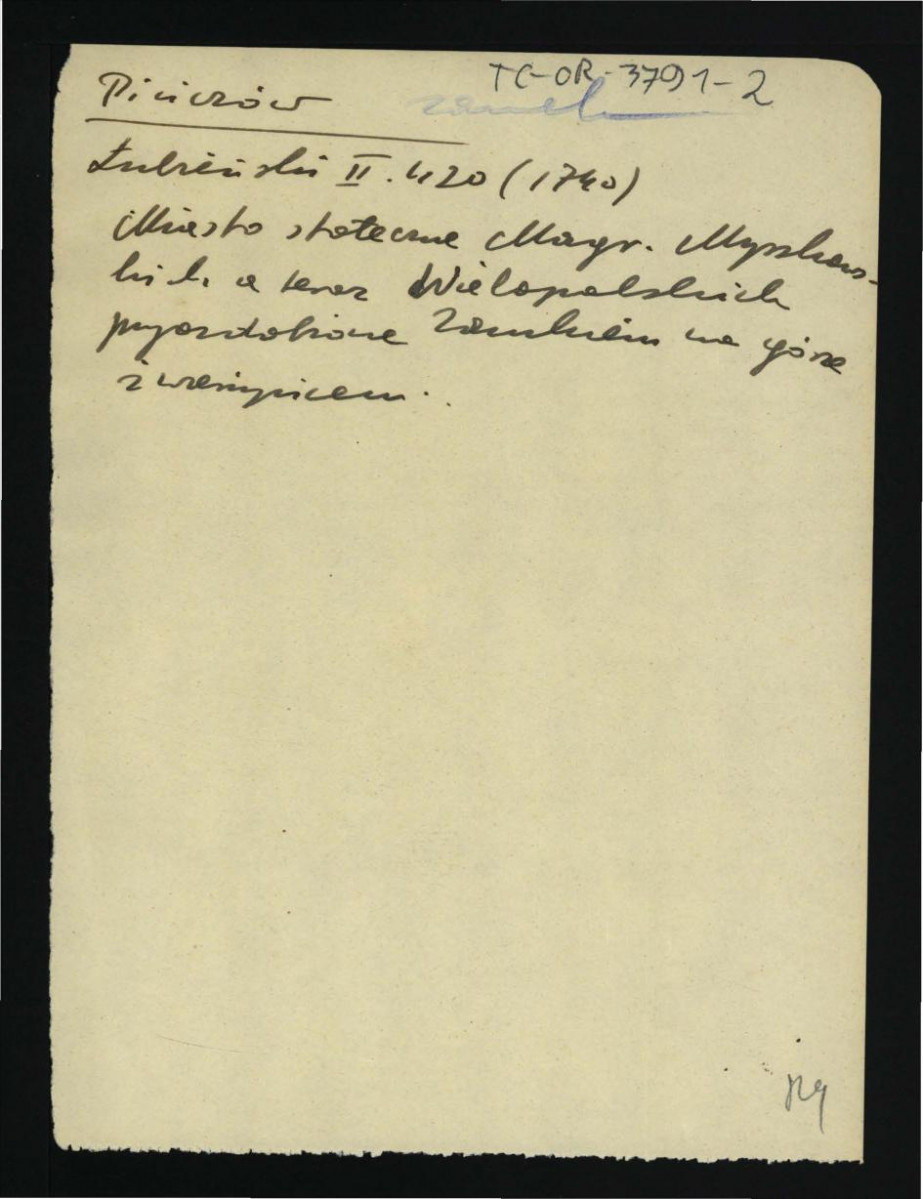 TC-OR-3791-2
Pińczów zamek
Łubieński II. 420 (1740)
Miasto stołeczne Margr. Myszkows-
kich a teraz Wielopolskich
przyozdobione Zamkiem na górze
zwierzyńcem.